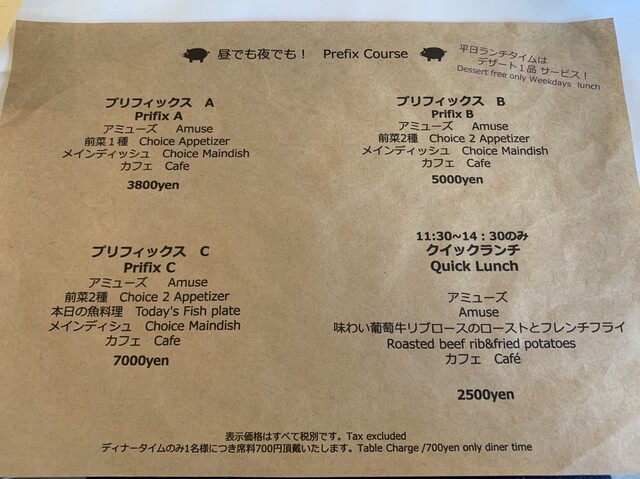 昼でも夜でも！ Prefix Course
平日ランチタイムは
デザート１品 サービス！
Dessert free only Weekdays lunch
プリフィックス A
Prifix A
アミューズ Amuse
前菜１種 Choice Appetizer
メインディッシュ Choice Maindish
カフェ Cafe
3800yen
プリフィックス B
Prifix B
アミューズ Amuse
前菜2種 Choice 2 Appetizer
メインディッシュ Choice Maindish
カフェ Cafe
5000yen
プリフィックス C
Prifix C
アミューズ Amuse
前菜2種 Choice 2 Appetizer
本日の魚料理 Today's Fish plate
メインディシュ Choice Maindish
カフェ Cafe
7000yen
11:30~14：30のみ
クイックランチ
Quick Lunch
アミューズ
Amuse
味わい葡萄牛リブロースのローストとフレンチフライ
Roasted beef rib&fried potatoes
カフェ Café
2500yen
表示価格はすべて税別です。Tax excluded
ディナータイムのみ1名様につき席料700円頂戴いたします。Table Charge /700yen only diner time